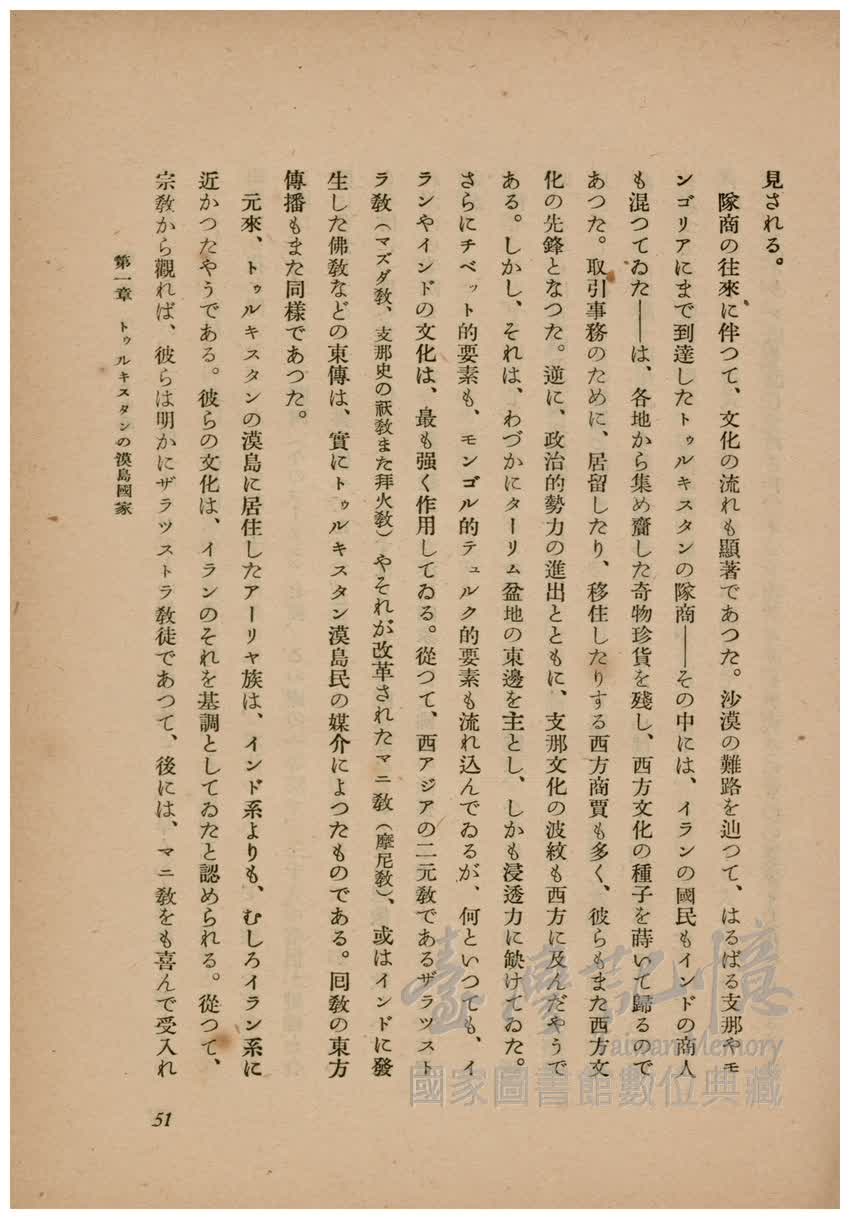 見される。
隊商の往來に伴つて、文化の流れも顯著であつた。沙漠の難路を辿つて、はるばる支那やモ
ンゴリアにまで到達したトゥルキスタンの隊商——その中には、イランの國民もインドの商人
も混つてゐた——は、各地から集め齎した奇物珍貨を殘し、西方文化の種子を蒔いて歸るので
あつた。取引事務のために、居留したり、移住したりする西方商賈も多く、彼らもまた西方文
化の先鋒となつた。逆に、政治的勢力の進出とともに、支那文化の波紋も西方に及んだやうで
ある。しかし、それは、わづかにターリム盆地の東邊を主とし、しかも浸透力に缺けてゐた。
さらにチベット的要素も、モンゴル的テュルク的要素も流れ込んでゐるが、何といつても、イ
ランやインドの文化は、最も强く作用してゐる。從つて、西アジアの二元敎であるザラツスト
ラ敎（マズダ敎、支那史の祆敎また拜火敎）やそれが改革されたマニ敎（摩尼敎）、或はインドに發
生した佛敎などの東傳は、實にトゥルキスタン漠島民の媒介によつたものである。囘敎の東方
傳播もまた同樣であつた。
元來、トゥルキスタンの漠島に居住したアーリヤ族は、インド系よりも、むしろイラン系に
近かつたやうである。彼らの文化は、イランのそれを基調としてゐたと認められる。從つて、
宗敎から觀れば、彼らは明かにザラツストラ敎徒であつて、後には、マニ敎をも喜んで受入れ
第一章 トゥルキスタンの漠島國家
51
臺灣記憶
Taiwan Memory
國家圖書館數位典藏